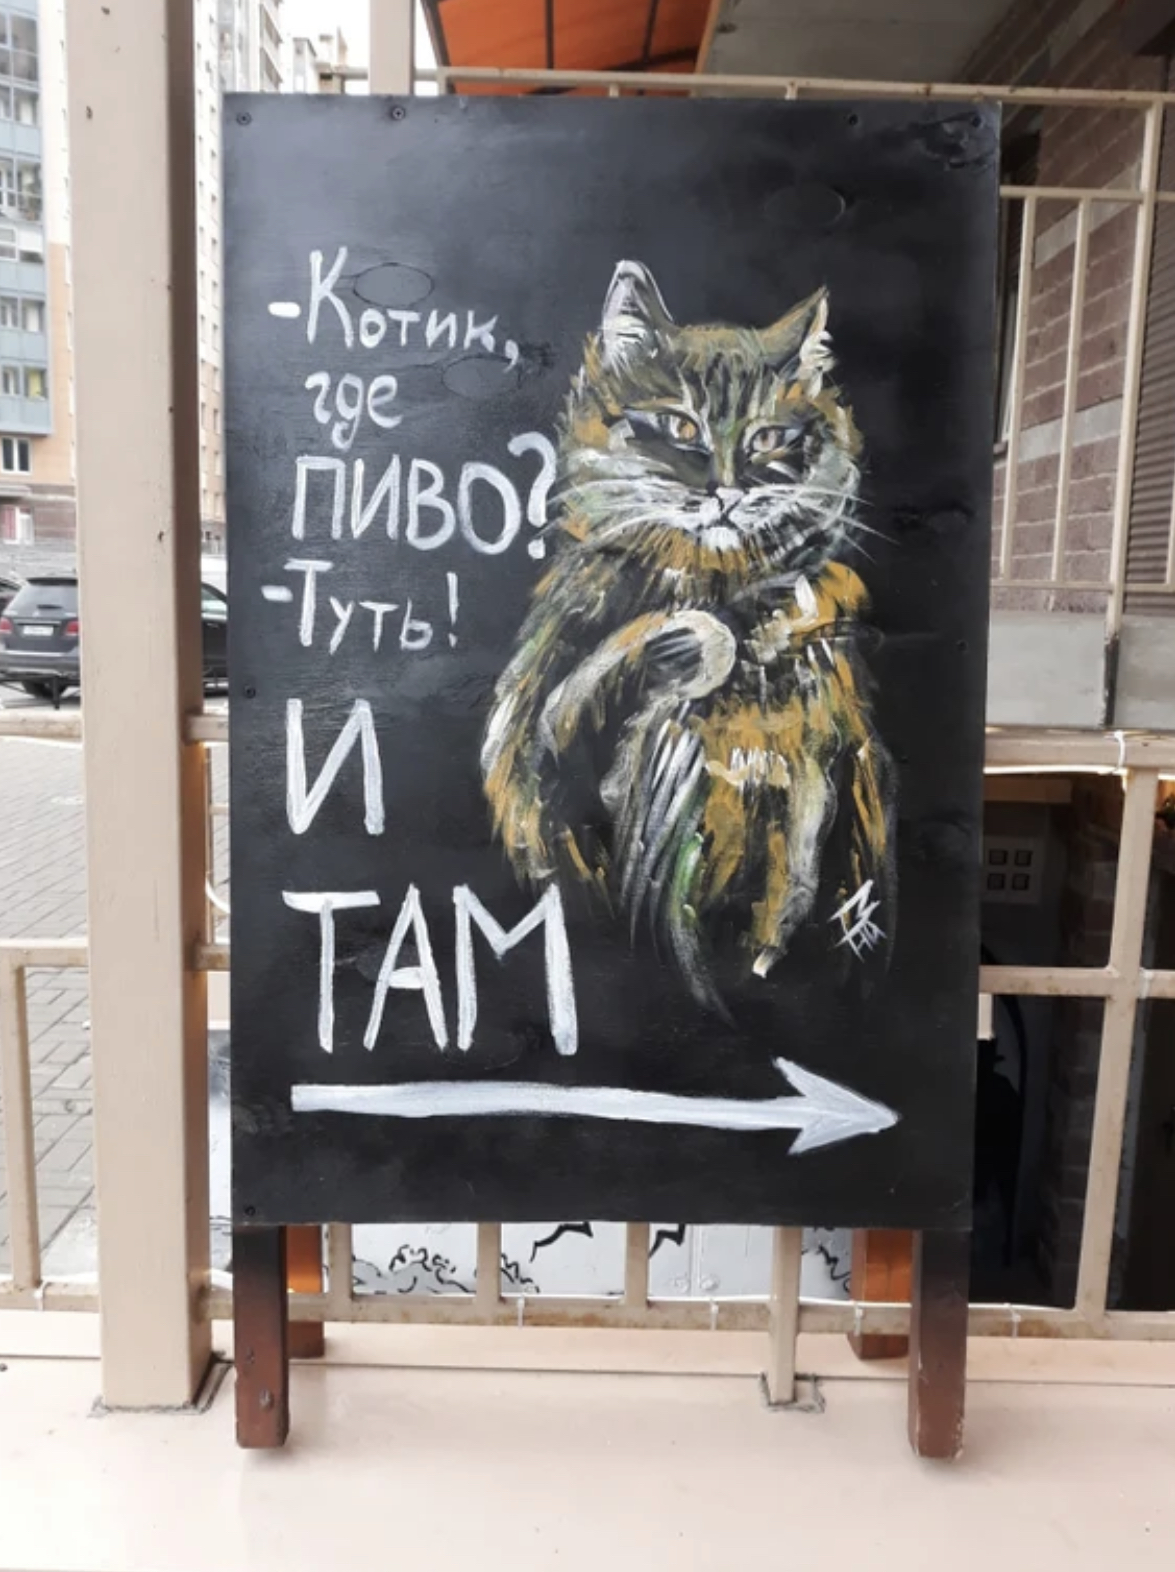 -Котик,
где
ПИВО?
-Туть!
И
ТАМ